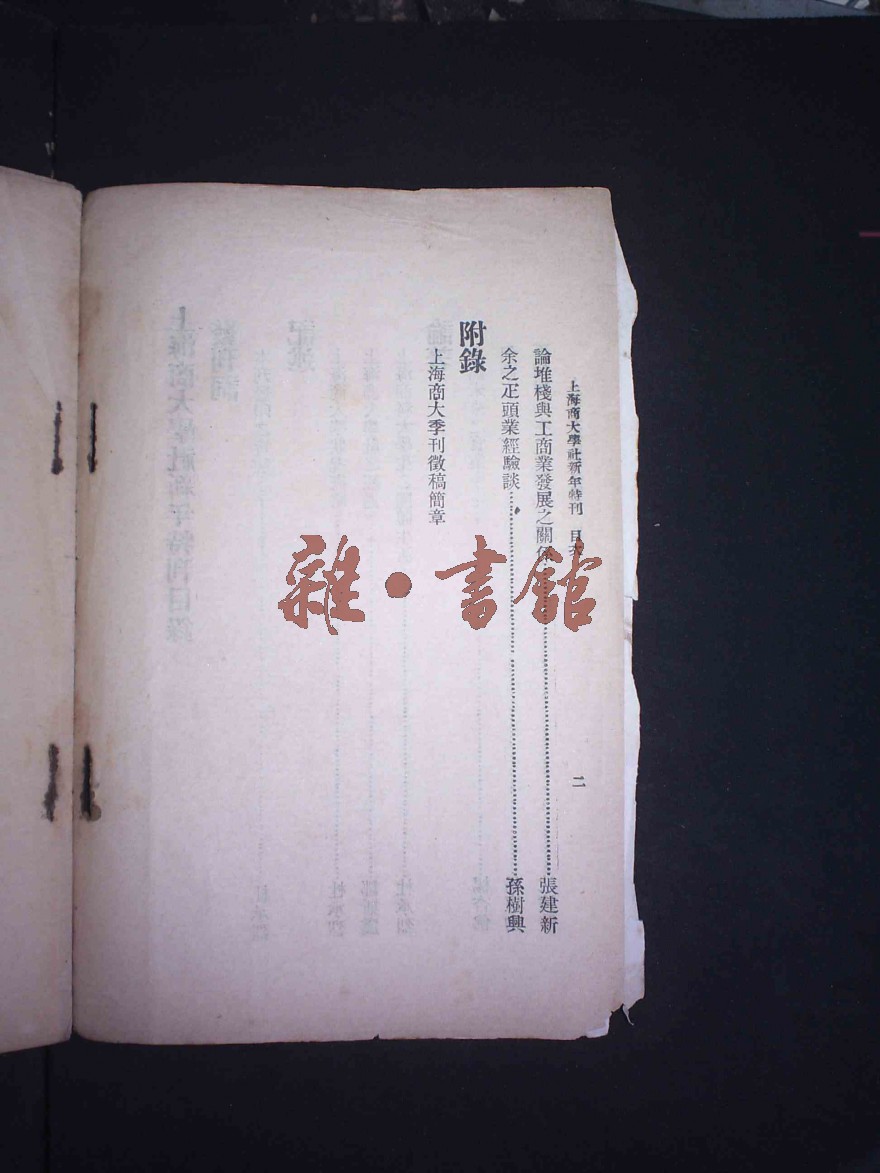 上海商大學社新年特刊　目次
二
論堆棧與工商業發展之關係……張建新
余之疋頭業經驗談……孫樹興
附錄
上海商大季刊徵稿簡章
雜·書館